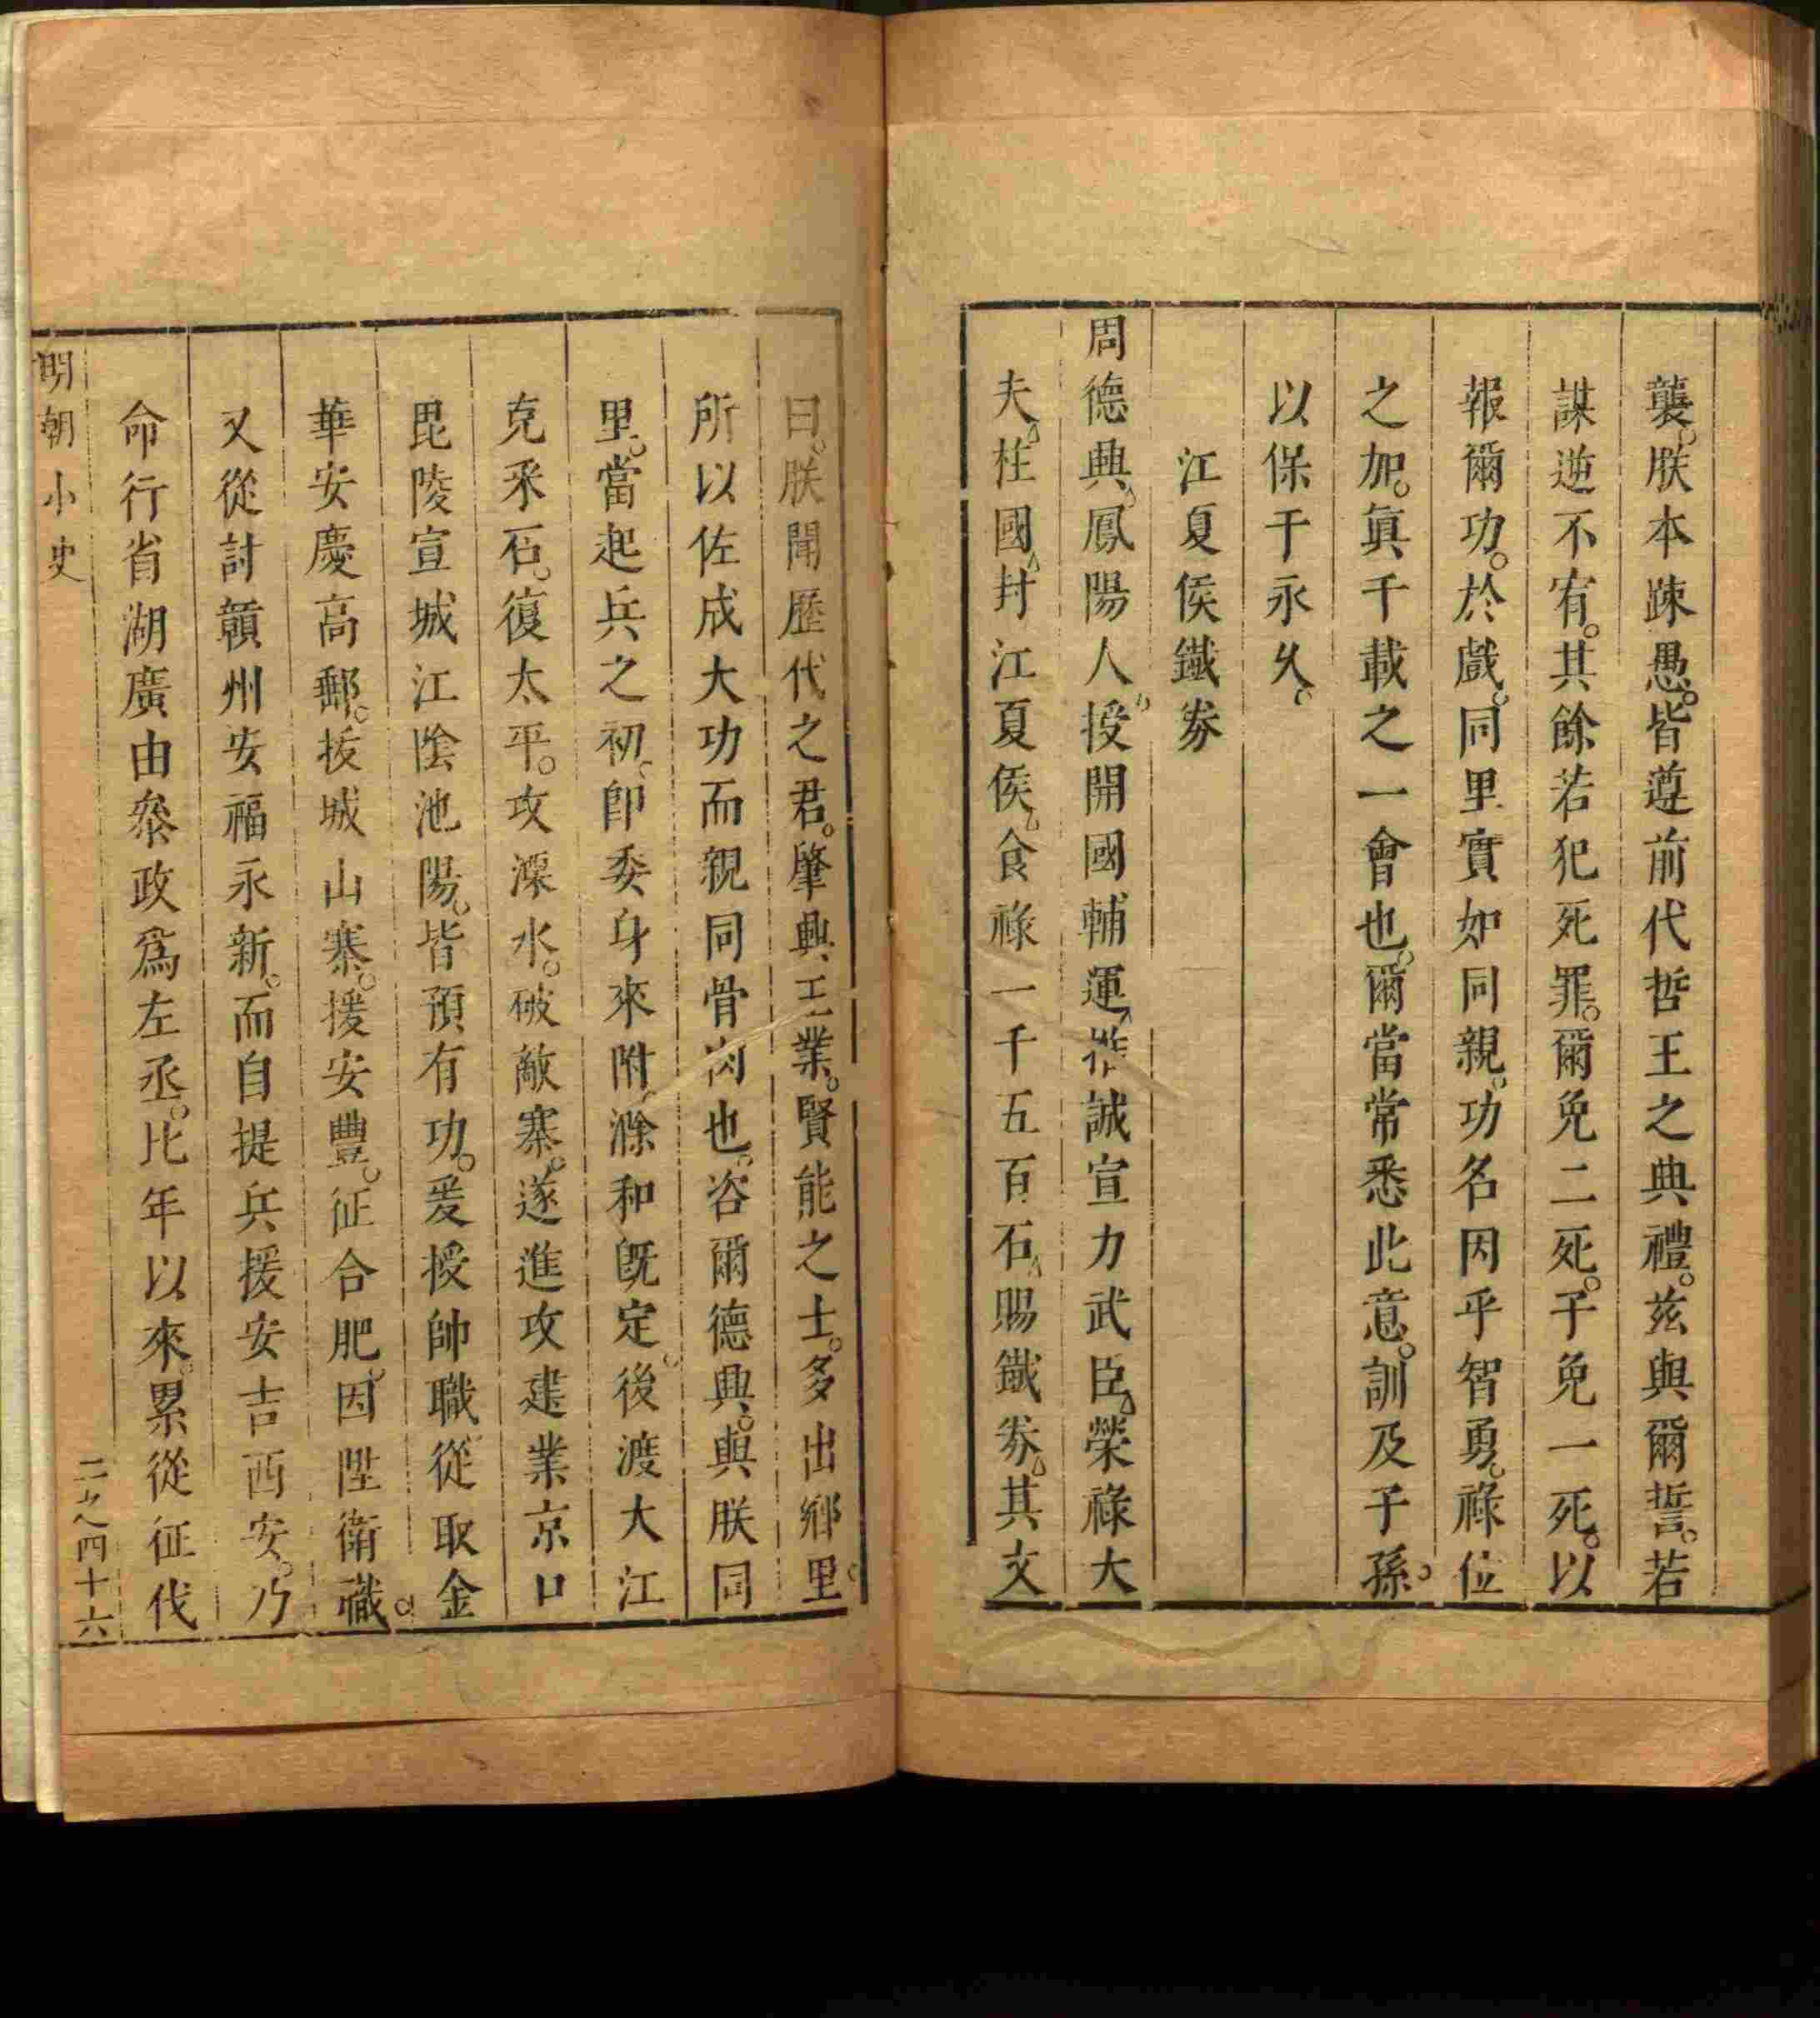 襲。朕本疎愚。皆遵前代哲王之典禮。茲與爾誓。若
謀逆不宥。其餘若犯死罪。爾免二死。子免一死。以
報爾功。於戲。同里實如同親。功名因乎智勇。祿位
之加。眞千載之一會也。爾當常悉此意。訓及子孫。
以保于永久。
江夏侯鐵券
周德興、鳳陽人、授開國輔運、推誠宣力武臣、榮祿大
夫、柱國、封江夏侯、食祿一千五百石、賜鐵券、其文
曰。朕聞歷代之君。肇興王業。賢能之士。多出鄉里。
所以佐成大功而親同骨肉也。咨爾德興。與朕同
里。當起兵之初、卽委身來附、滁和旣定。後渡大江
克采石。復太平。攻溧水。破敵寨。遂進攻建業京口
毘陵宣城江陰池陽。皆預有功。爰授帥職從取金
華安慶高郵。拔城山寨。援安豐。征合肥。因陞衛職。
又從討贛州安福永新。而自提兵援安吉西安。乃
命行省湖廣由叅政爲左丞。比年以來。累從征伐
明朝小史
二之四十六